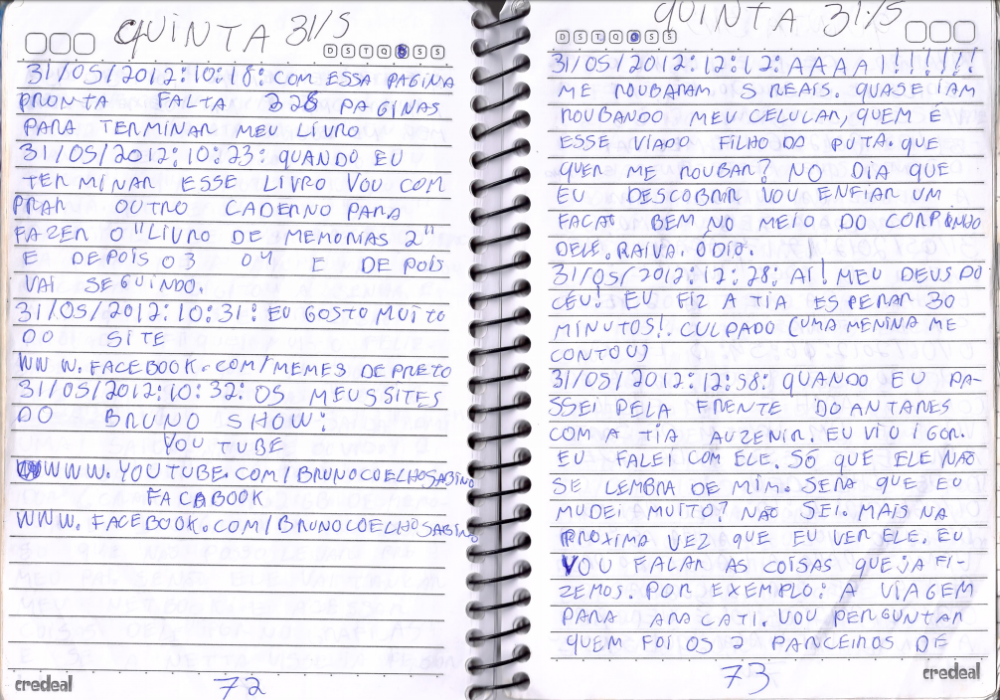 QUINTA 31/5
D S T Q Q S S
31/05/2012:10:18: COM ESSA PAGINA
PRONTA FALTA 228 PAGINAS
PARA TERMINAR MEU LIVRO
31/05/2012:10:23: QUANDO EU
TERMINAR ESSE LIVRO VOU COM
PRAR OUTRO CADERNO PARA
FAZER O "LIVRO DE MEMORIAS 2"
E DEPOIS O 3 O 4 E DEPOIS
VAI SEGUINDO.
31/05/2012:10:31: EU GOSTO MUITO
DO SITE
WWW.FACEBOOK.COM/MEMES DE PRETO
31/05/2012:10:32: OS MEUS SITES
DO BRUNO SHOW:
YOU TUBE
WWW.YOUTUBE.COM/BRUNOCOELHOSABINO
FACABOOK
WWW.FACEBOOK.COM/BRUNOCOELHOSABINO
credeal
72
QUINTA 31/5
D S T Q Q S S
31/05/2012:12:12: AAAA!!!!!!
ME ROUBARAM 5 REAIS. QUASE IAM
ROUBANDO MEU CELULAR, QUEM É
ESSE VIADO FILHO DA PUTA. QUE
QUER ME ROUBAR? NO DIA QUE
EU DESCOBRIR VOU ENFIAR UM
FACA BEM NO MEIO DO CORP
DELE. RAIVA. ÓDIO.
31/05/2012:12:28: AI! MEU DEUS DO
CÉU! EU FIZ A TIA ESPERAR 30
MINUTOS!. CULPADO (UMA MENINA ME
CONTOU)
31/05/2012:12:58: QUANDO EU PA-
SSEI PELA FRENTE DO ANTARES
COM A TIA AUZENIR. EU VI O IGOR.
EU FALEI COM ELE. SÓ QUE ELE NÃO
SE LEMBRA DE MIM. SERA QUE EU
MUDEI MUITO? NÃO SEI. MAIS NA
PROXIMA VEZ QUE EU VER ELE. EU
VOU FALAR AS COISAS QUE JA FI-
ZEMOS. POR EXEMPLO: A VIAGEM
PARA ARACATI. VOU PERGUNTAR
QUEM FOI OS 2 PARCEIROS DE
73
credeal